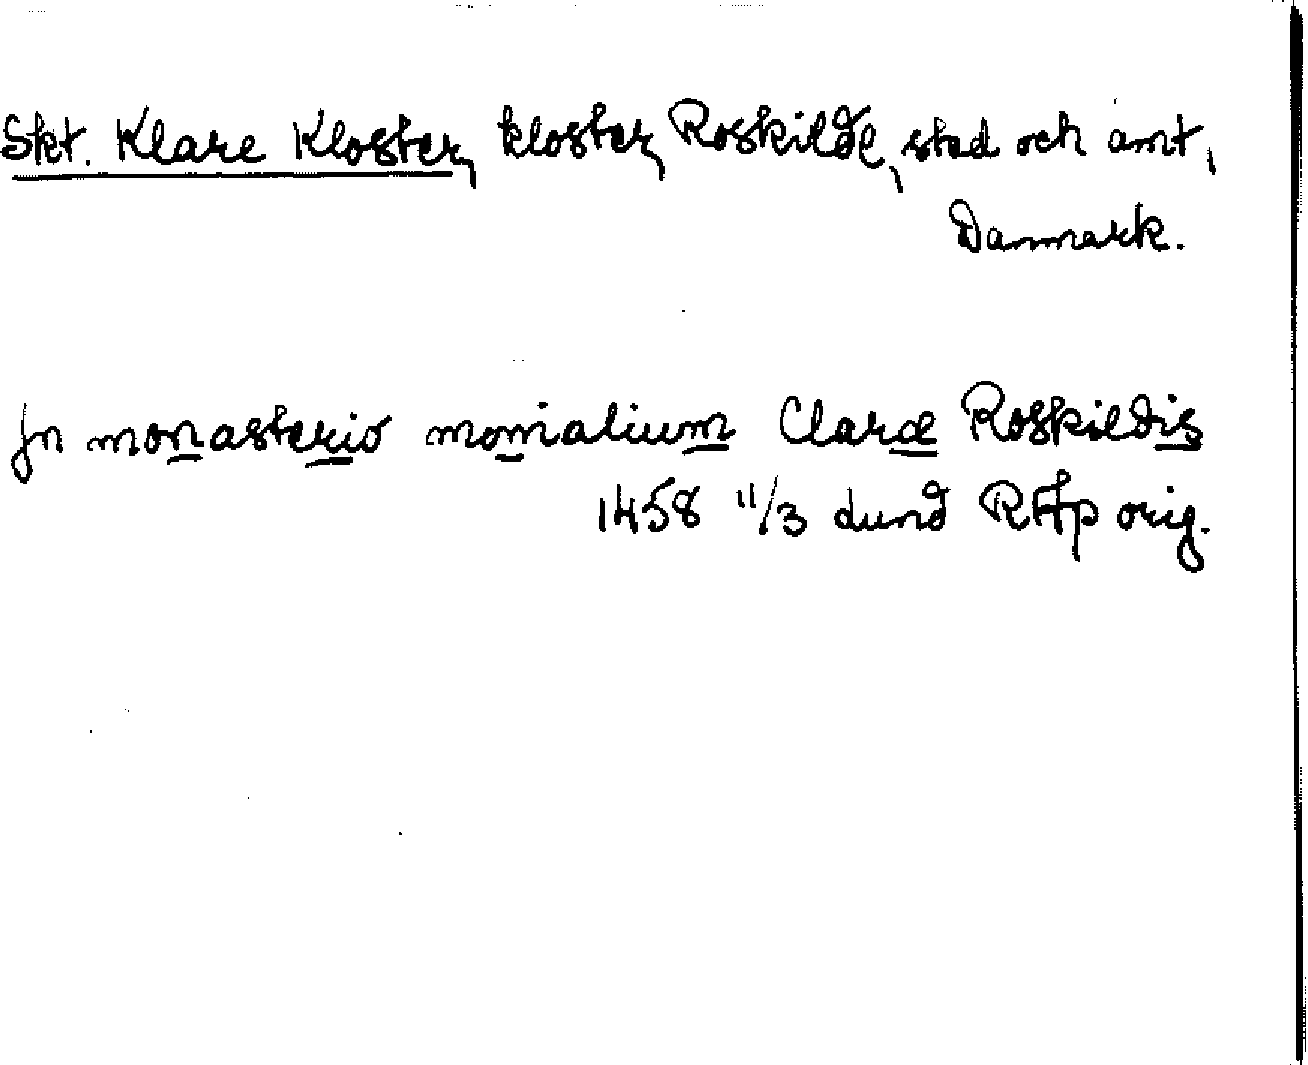 Skt. Klare Kloster, kloster, Roskilde, stad och amt,
Danmark.
Jn monasterio monialium Claræ Roskildis
1458 11/3 Lund RAp orig.